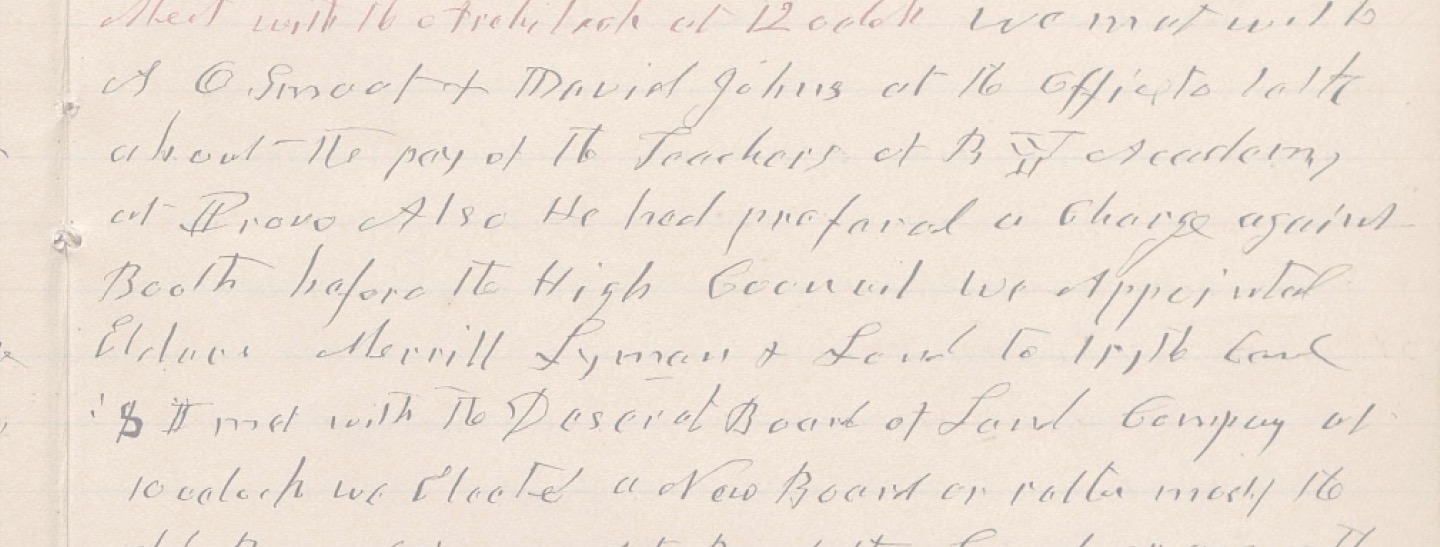 Meet with the Architech at 12 oclok We met with
A O Smoot & David Johns at the Office to talk
about the pay of the Teachers at B Y Academy
at Provo Also He had prefared a Charge against
Booth before the High Council we Appointed
Elders Merrill Lyman & Lund to try the Case
8 I met with the Deseret Board of Land Company at
10 oclock we Elected a New Board or rather mostly the